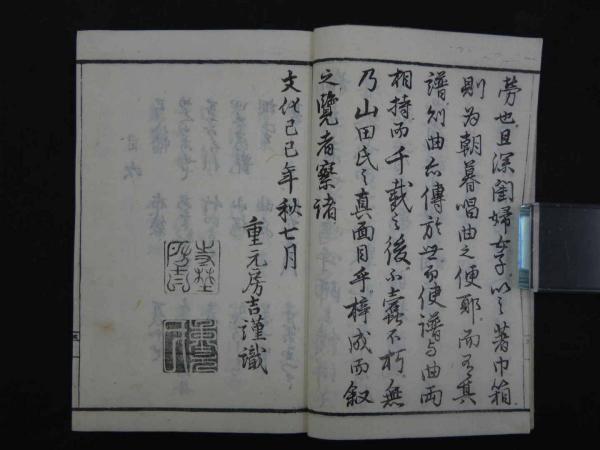 勞也且深閨婦女子以之著巾箱
則为朝暮唱曲之便耶而有其
譜則曲亦傳於世而使譜与曲両
相持而千載之後不蠹不朽無
乃山田氏之真面目乎梓成而叙
之覽者察諸
文化己巳年秋七月
重元房吉謹識